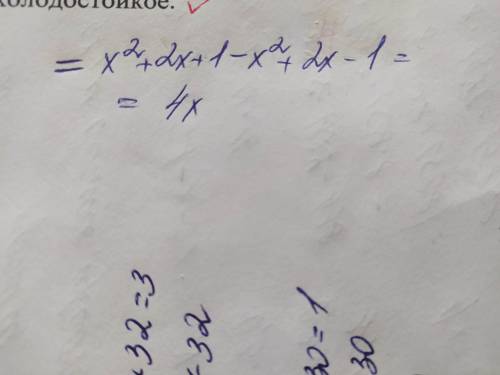 холодостойкое.
= x²+2x+1-x²+2x-1=
= 4x
32=3
=32
30=1
30